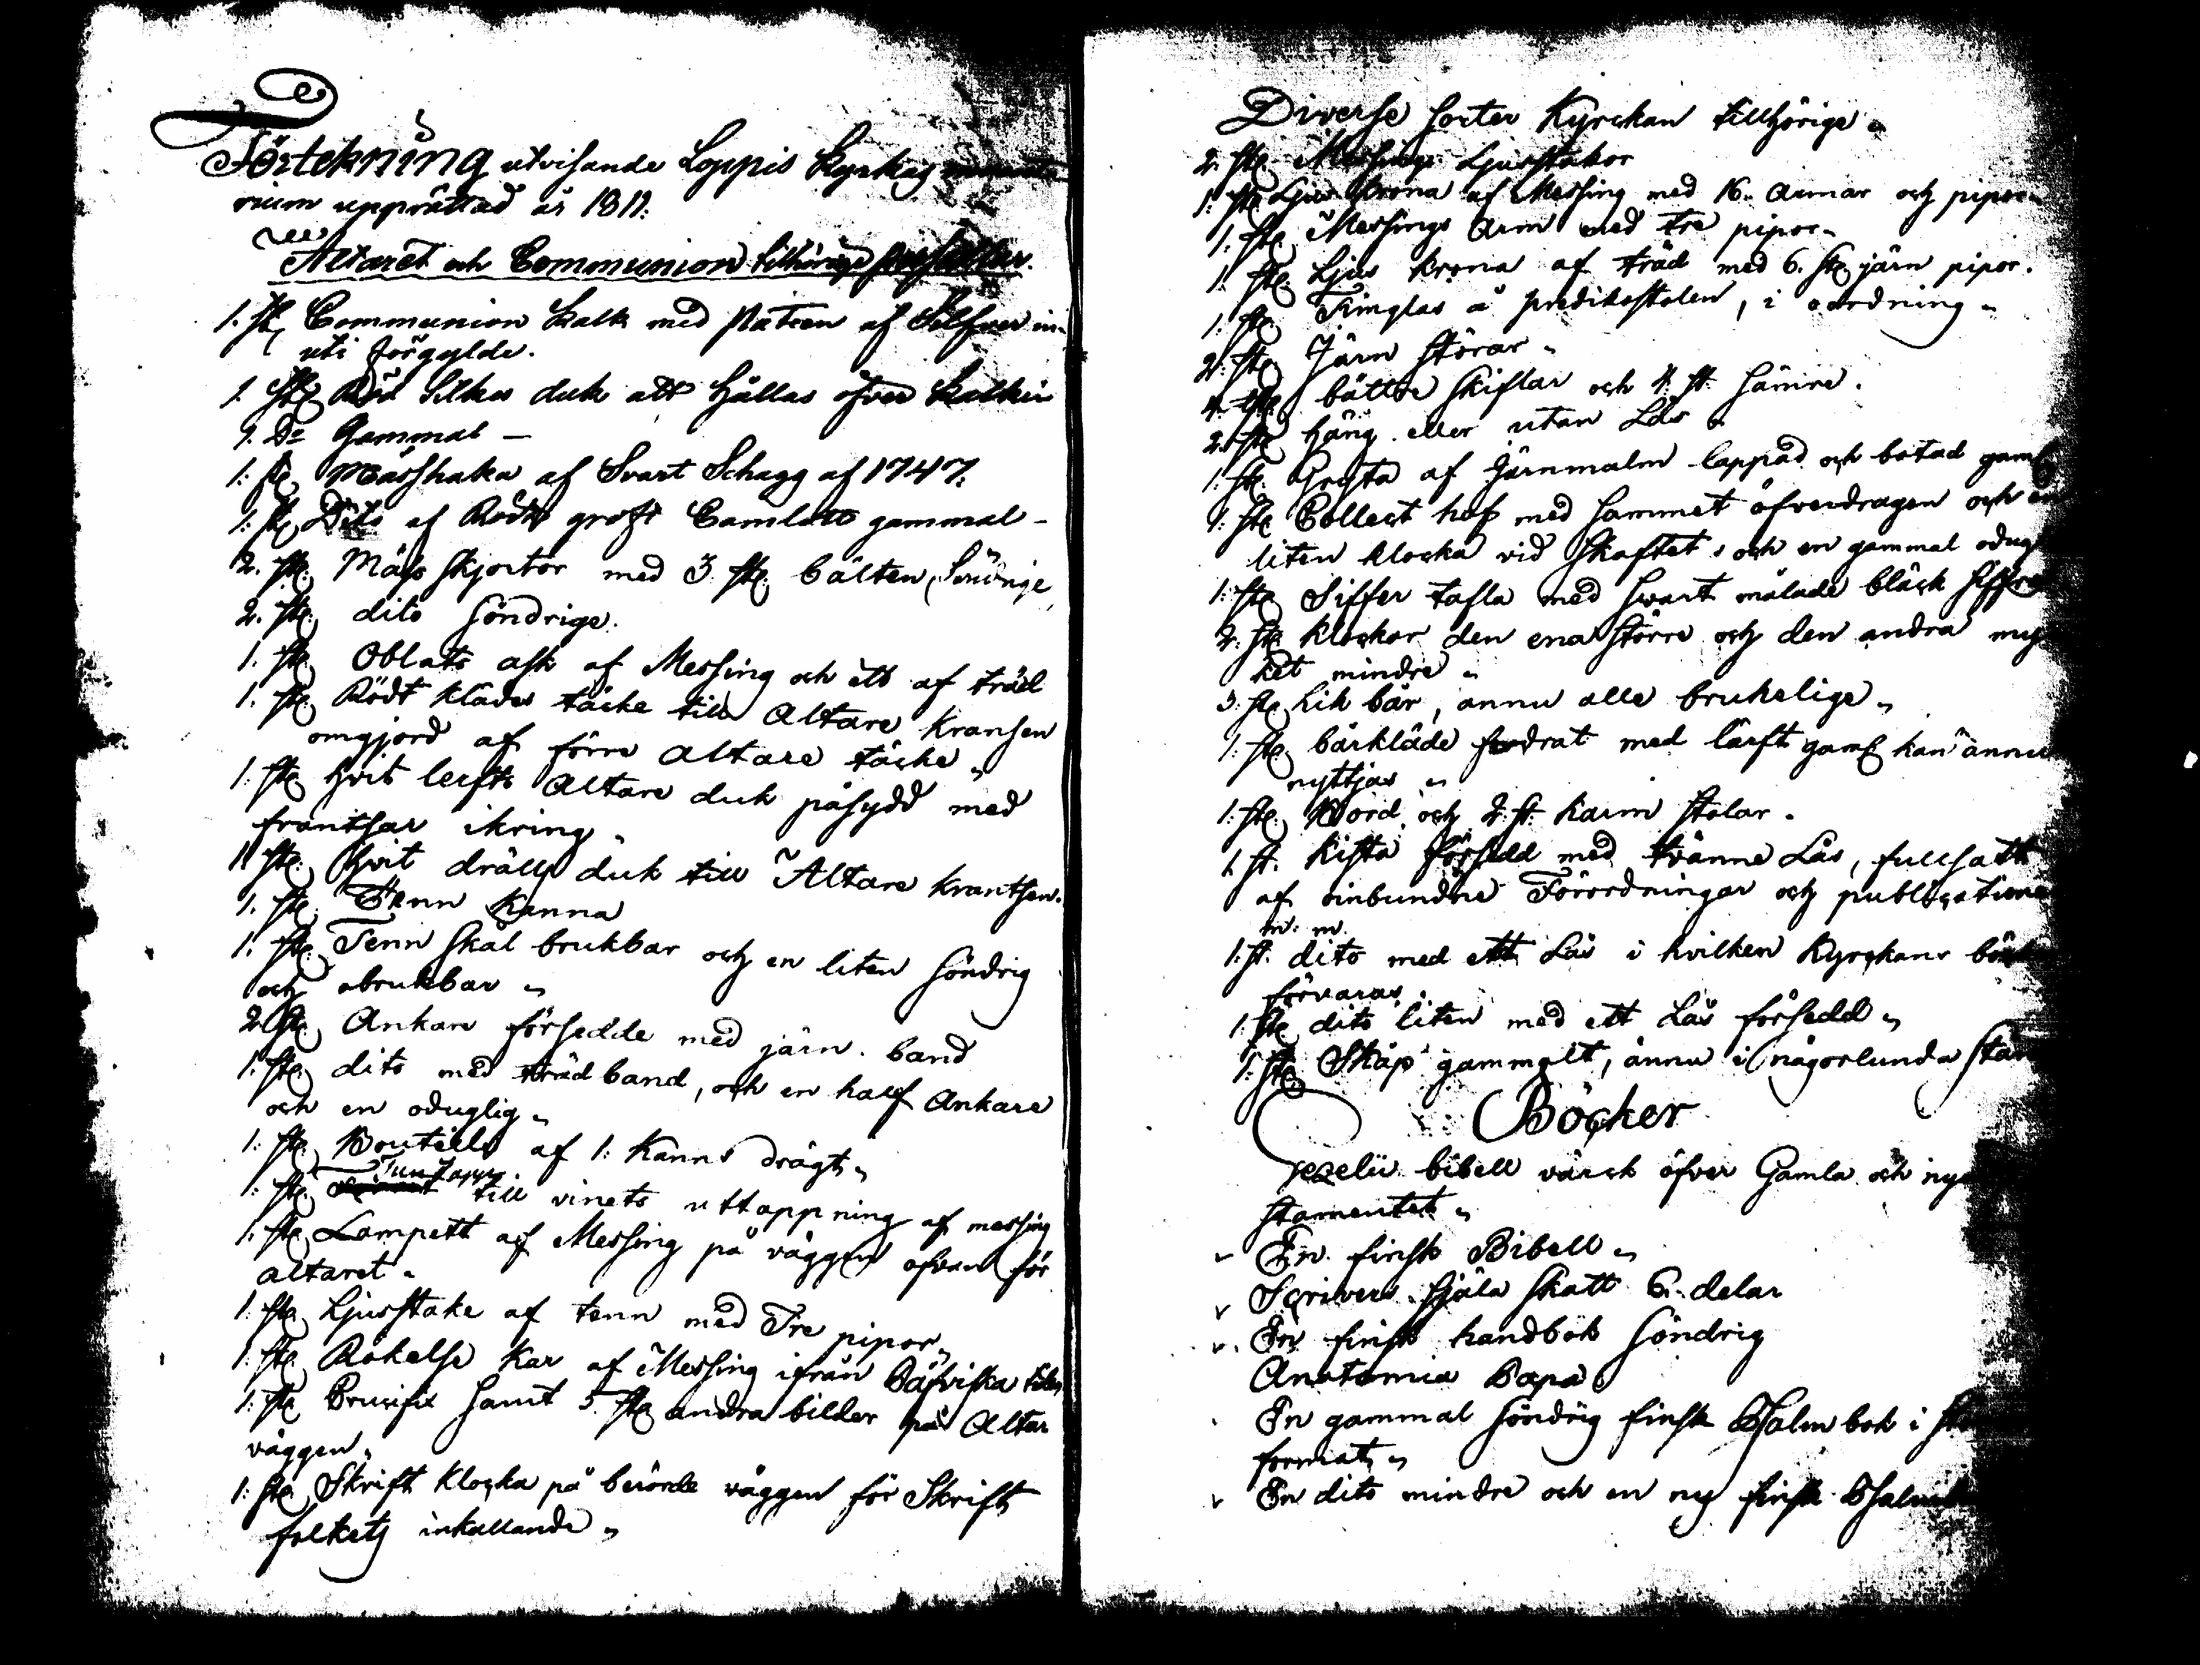 Förtekning utvisande Loppis Kyrkas
rium upprättad år 1811.
Altaret och Communion tillhörige persedlar.
1. st. Communion Kalk med Paten af Silfver in-
uti förgylde.
1. st. Röd Silkes duk att hållas öfver Kalken
1. Do Gammal —
1: st. Mässhaka af Svart Schagg af 1747.
1: st. Dito af Rödt groft Camlott gammal -
2. st. Mäss skjortor med 3 st. bälten,
2. st. dito söndrige.
1. st. Oblats ask af Messing och ett af träd
1. st. Rödt Klädes täcke till Altare Kransen
omgjord af förre altare täcke
1. st. hvit lerfts Altare duk påsydd med
frantsar ikring.
1 st. hvit drälls duk till Altare Krantsen.
1. st. Tenn Kanna
1. st. Tenn Skål brukbar och en liten söndrig
och obrukbar
2 st. Ankare försedde med järn band
1. st. dito med träd band, och en half Ankare
och en oduglig
1: st. Bouteille af 1: Kanns drägt
1: st. till vinets uttappning af messing
1. st. Lampett af Messing på väggen ofvan för
altaret.
1. st. Ljusstake af tenn med Tre pipor
1. st. Rökelse Kar af Messing ifrån Påfviska tiden
1: st. Crucifix samt 5 st. andra bilder på Altar
väggen
1: st. Skrift Klocka på berörde väggen för Skrift
folkets inkallande
Diverse sorter Kyrckan tillhörige
2. st. Messings Ljusstakar
1: st. Ljus Krona af Messing med 16 armar och pipor
1. st. Messings Arm med tre pipor
1 st. Ljus Krona af träd med 6. st. järn pipor.
1. st. Timglas å predikostolen, i oordning
2. st. Järn störar
4. st. bättre skiflar och 4. st. sämre.
2. st. häng eller utan Lås
1. st. Gryta af Järnmalm lappad och botad gaml
1. st. Collect håf med sammet öfverdragen och en
liten klocka vid skaftet, och en gammal odugl
1: st. Siffer tafla med svart målade bläck siffror
2: st. klockor den ena större och den andra myc
ket mindre
3. st. Lik bår, ännu alle brukelige
1: st. bårkläde fodrat med lärft gaml kan ännu
nyttjas
1: st. Bord och 2 st. Karm stolar.
1 st. Kista försedd med tvänne Lås, fullsatt
af oinbundne Förordningar och publicatione
m. m.
1. st. dito med ett Lås i hvilken Kyrckans
förvaras.
1: st. dito liten med ett Lås försedd
1: st. Skåp gammalt, ännu i någorlunda
Böcker
Gezelii bibell värck öfver Gamla och nya
stamentet
En finsk Bibell
Scrivers Själa Skatt 6. delar
En finsk handbok söndrig
Anatomia Papa
En gammal söndrig finsk Psalm bok i
format
En dito mindre och en ny finsk